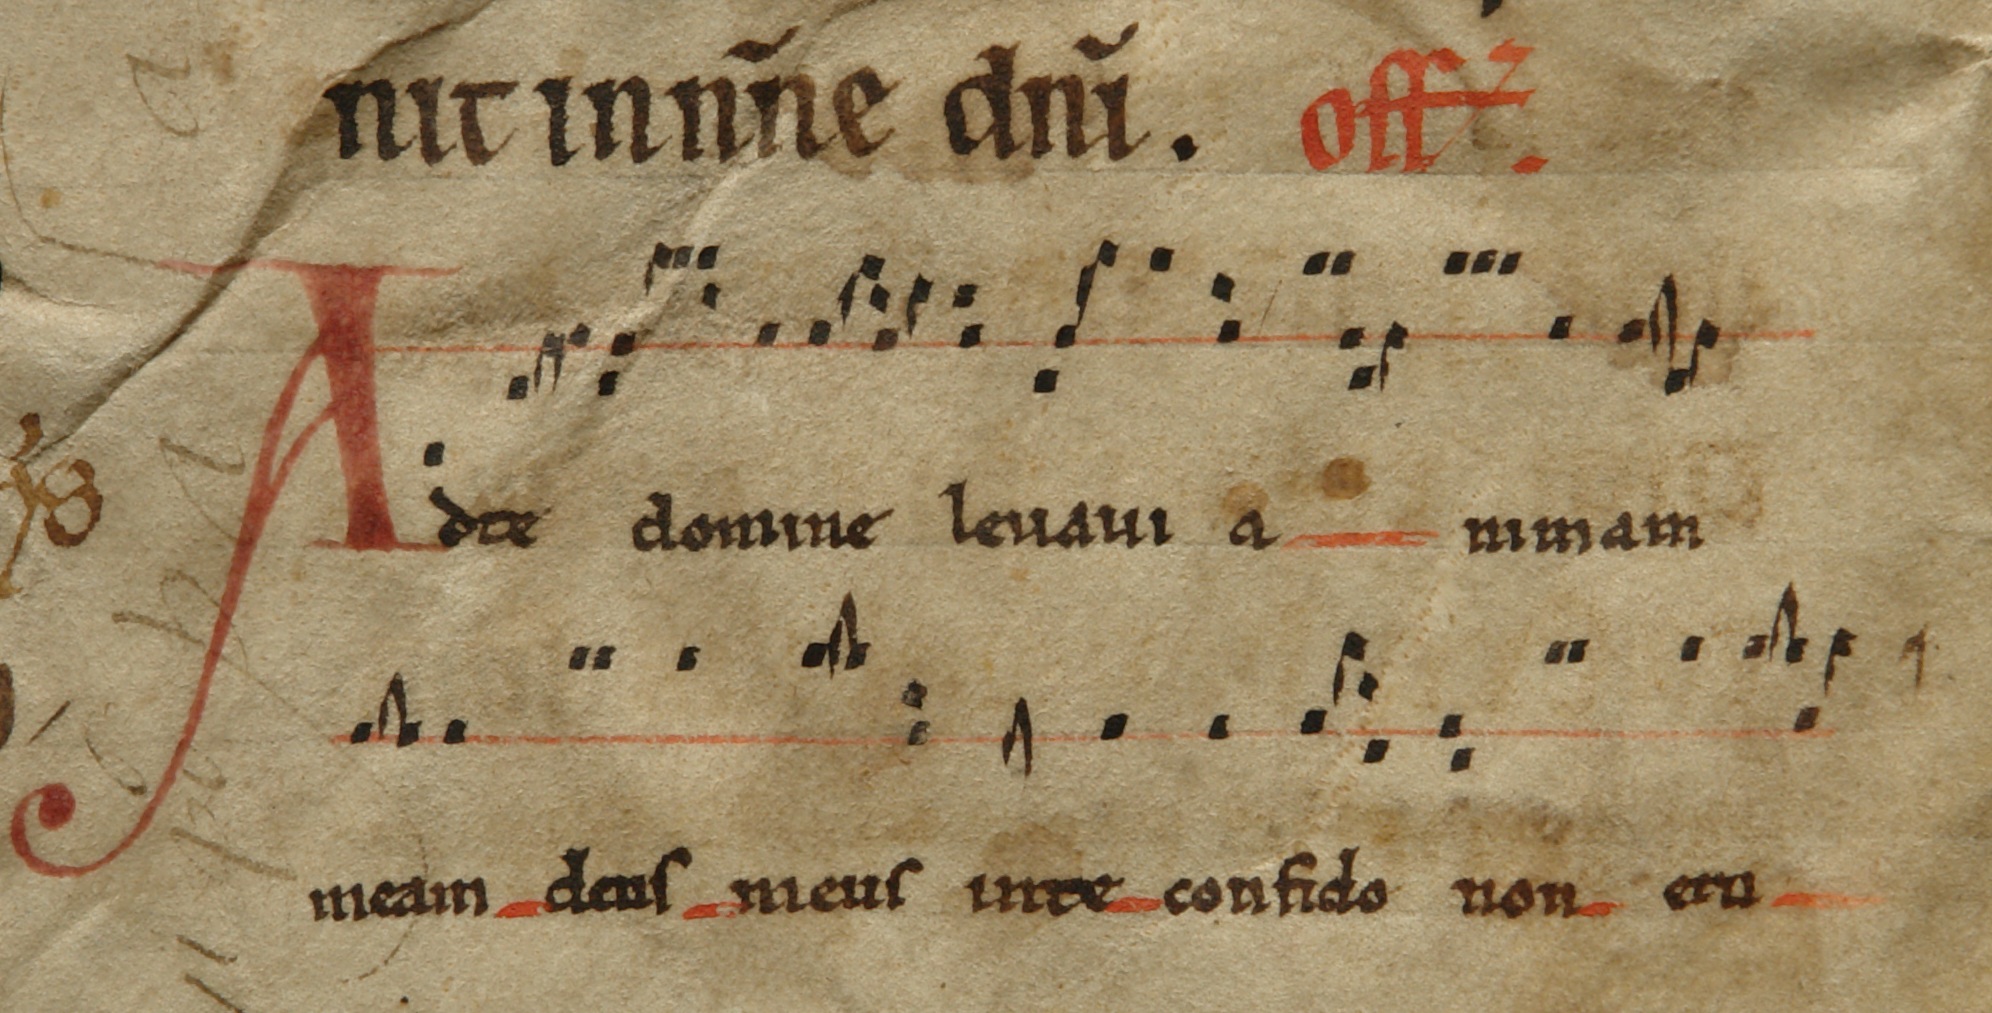 nit in nñe dnĩ. off
Ad te domine levavi a nimam
meam deus meus in te confido non eru